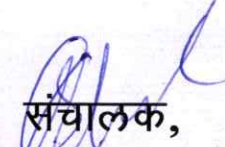 संचालक,